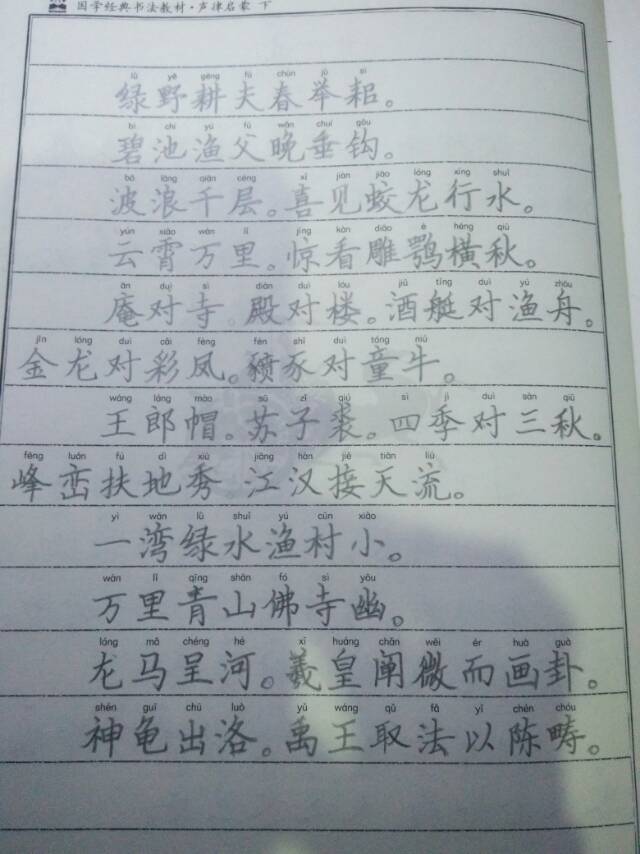 国学经典书法教材·声律启蒙 下
lǜ yě gēng fū chūn jǔ sì
绿野耕夫春举耜。
bì chí yú fǔ wǎn chuí gōu
碧池渔父晚垂钩。
bō làng qiān céng xǐ jiàn jiāo lóng xíng shuǐ
波浪千层。喜见蛟龙行水。
yún xiāo wàn lǐ jīng kàn diāo è héng qiū
云霄万里。惊看雕鹗横秋。
ān duì sì diàn duì lóu jiǔ tǐng duì yú zhōu
庵对寺。殿对楼。酒艇对渔舟。
jīn lóng duì cǎi fèng fén shǐ duì tóng niú
金龙对彩凤。豮豕对童牛。
wáng láng mào sū zǐ qiú sì jì duì sān qiū
王郎帽。苏子裘。四季对三秋。
fēng luán fú dì xiù jiāng hàn jiē tiān liú
峰峦扶地秀 江汉接天流。
yì wān lǜ shuǐ yú cūn xiǎo
一湾绿水渔村小。
wàn lǐ qīng shān fó sì yōu
万里青山佛寺幽。
lóng mǎ chéng hé xī huáng chǎn wēi ér huà guà
龙马呈河。羲皇阐微而画卦。
shén guī chū luò yǔ wáng qǔ fǎ yǐ chén chóu
神龟出洛。禹王取法以陈畴。